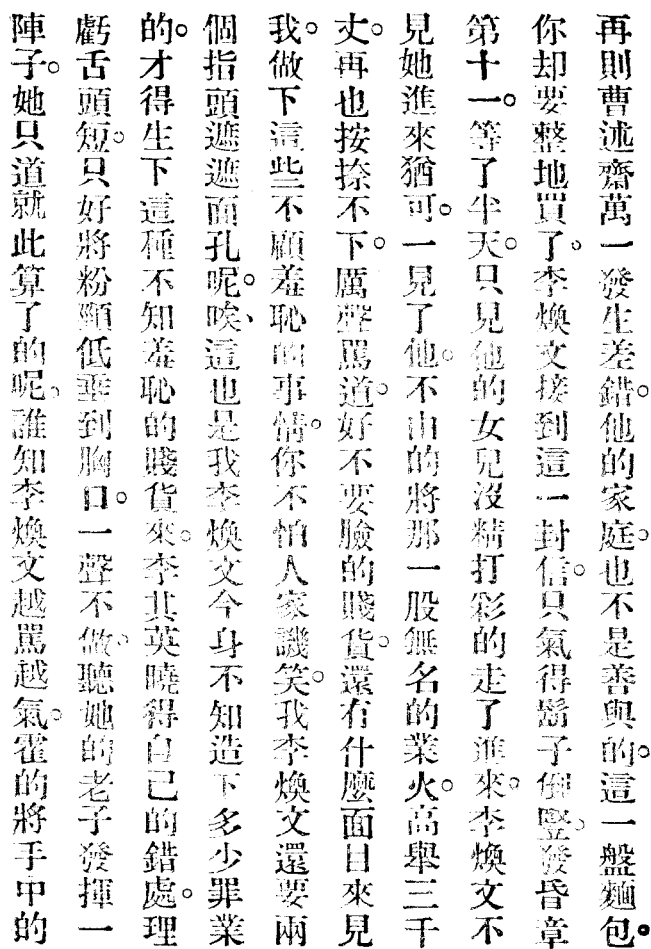 再則曹述齋萬一發生差錯。他的家庭。也不是善與的。這一盤麵包。
你却要整地買了。李煥文接到這一封信。只氣得鬍子倒豎。發昏章
第十一。等了半天。只見他的女兒沒精打彩的走了進來。李煥文不
見她進來猶可。一見了他。不由的將那一股無名的業火。高舉三千
丈。再也按捺不下。厲聲罵道。好不要臉的賤貨。還有什麼面目來見
我。做下這些不顧羞恥的事情。你不怕人家譏笑。我李煥文還要兩
個指頭遮遮面孔呢。唉、這也是我李煥文今身不知造下多少罪業
的。才得生下這種不知羞恥的賤貨來。李其英曉得自己的錯處。理
虧舌頭短。只好將粉頸低垂到胸口。一聲不做。聽她的老子發揮一
陣子。她只道就此算了的呢。誰知李煥文越罵越氣。霍的將手中的